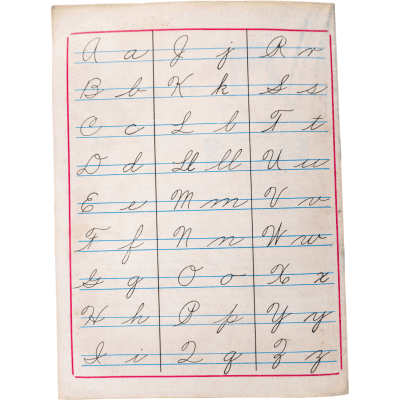 A a J j R r
B b K k S s
C c L l T t
D d Ll ll U u
E e M m V v
F f N n W w
G g O o X x
H h P p Y y
I i Q q Z z